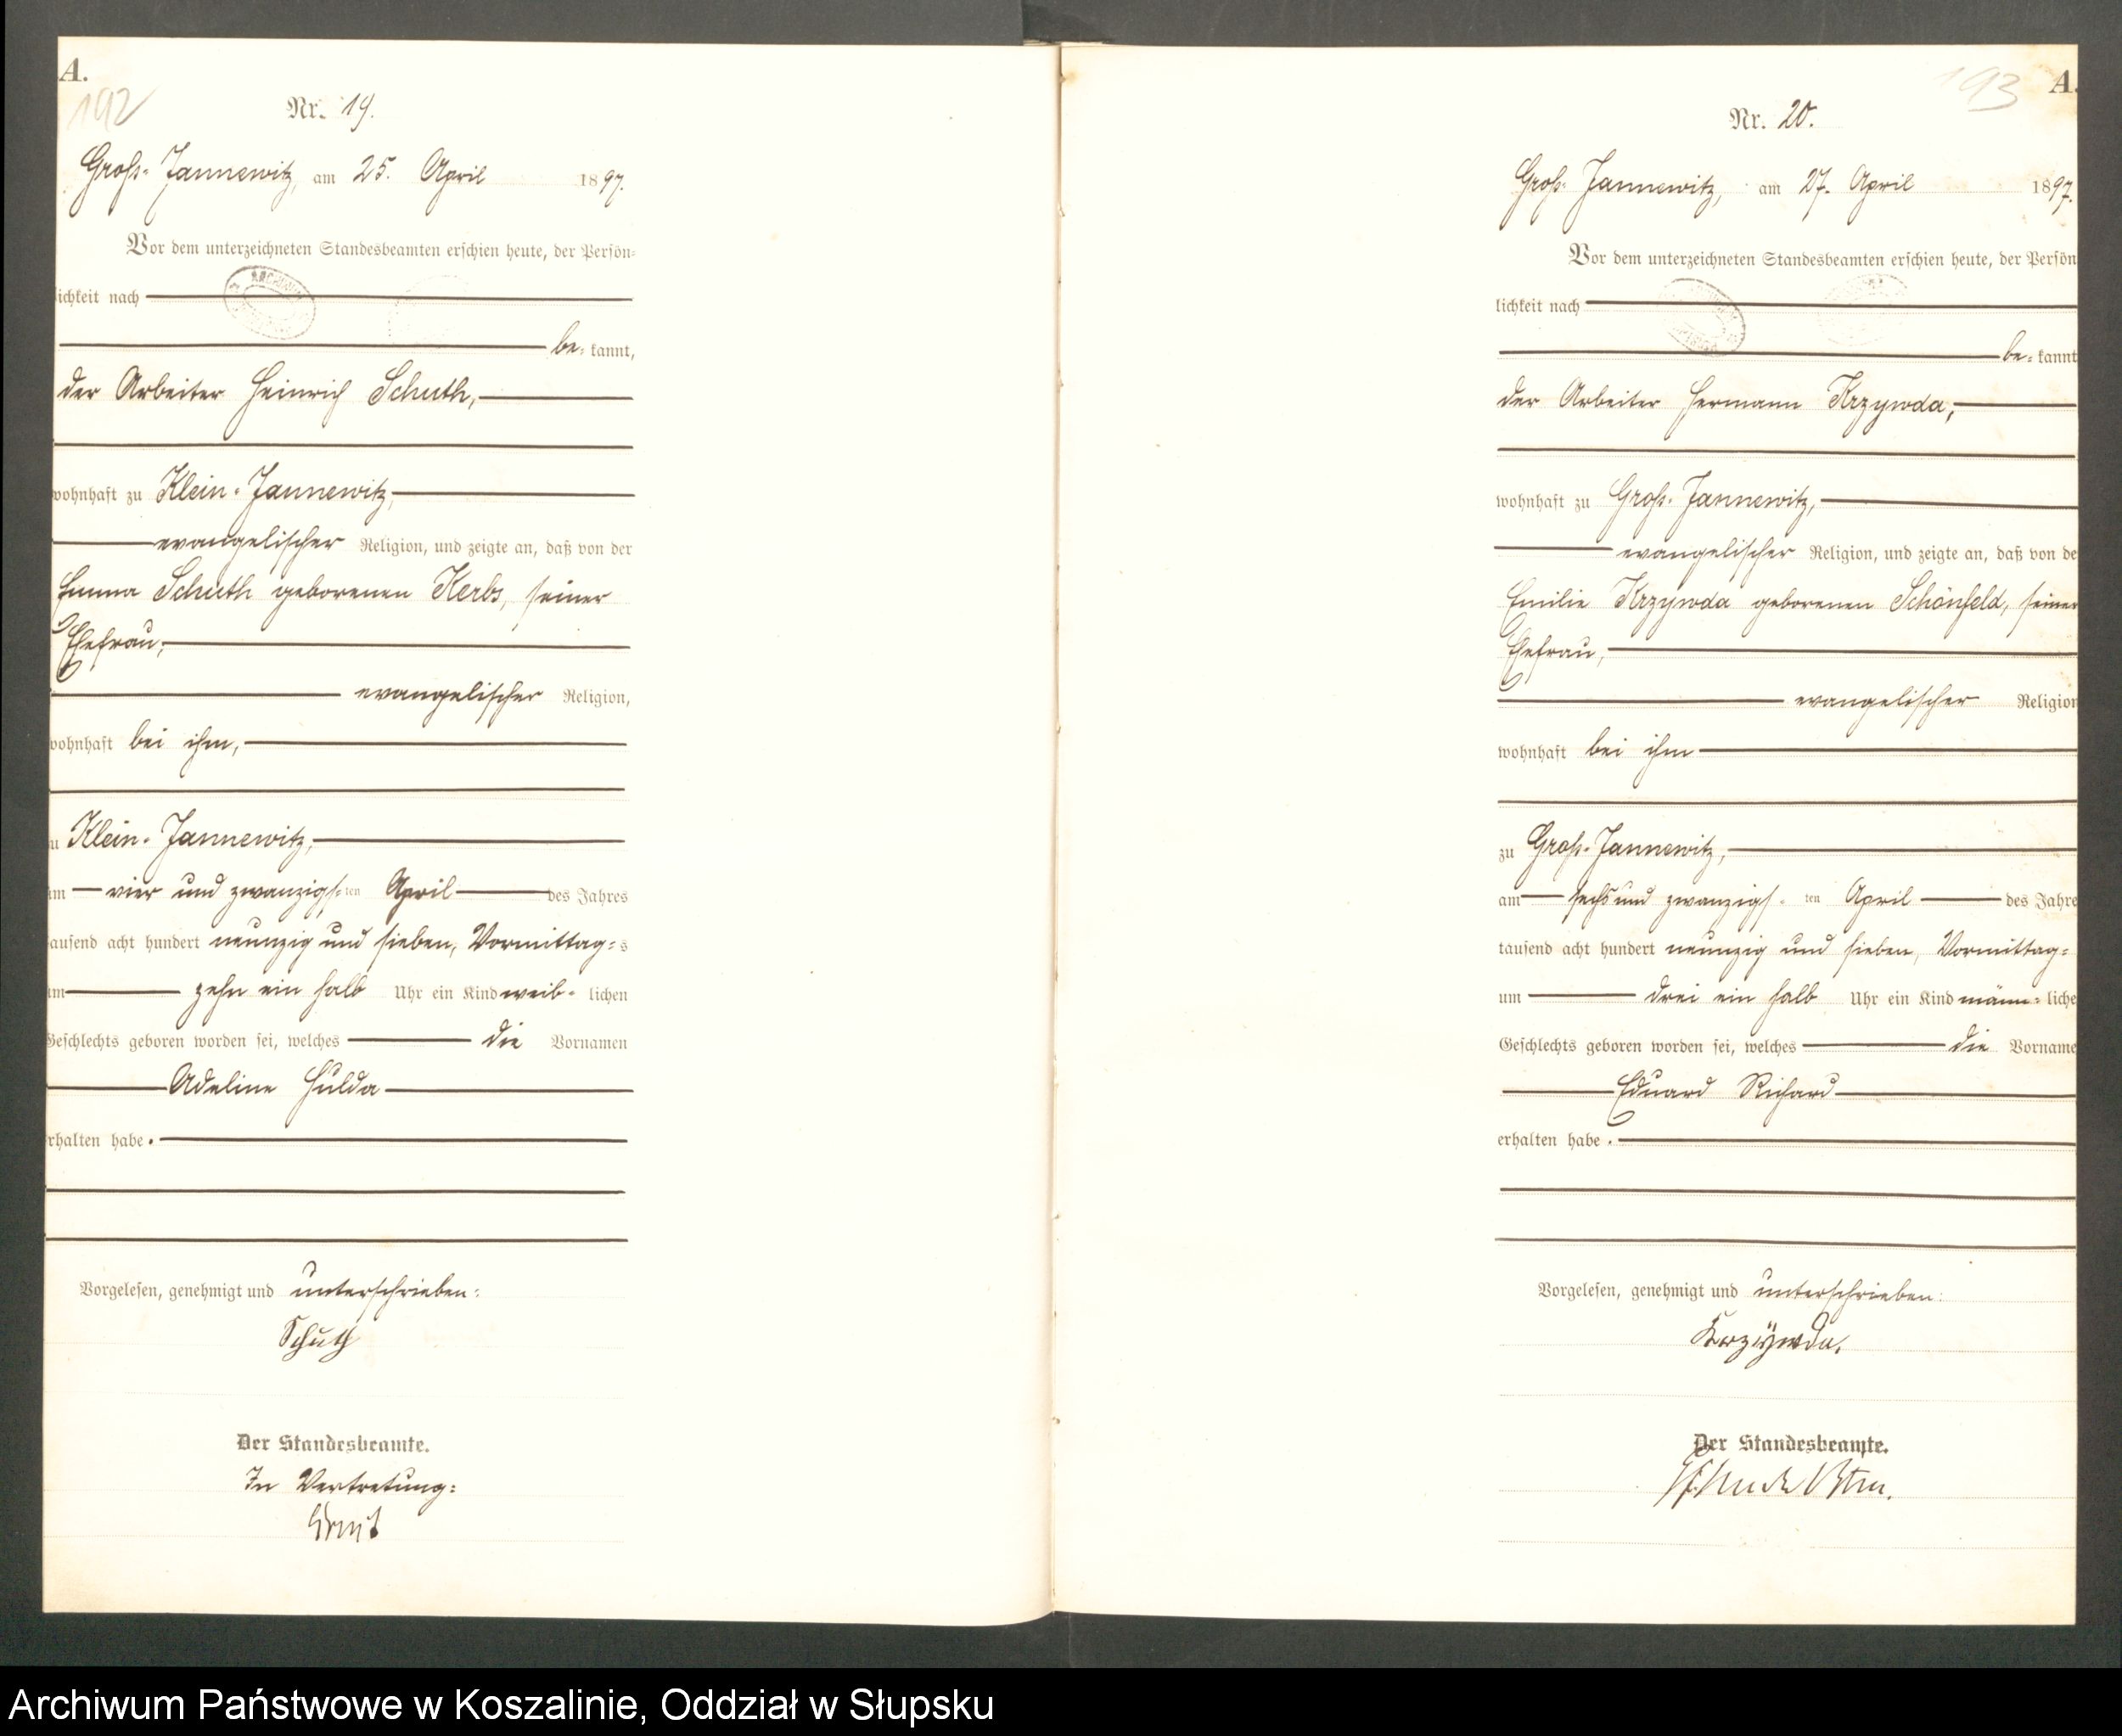 A.
192
Nr. 19.
Groß-Jannewitz, am 25. April 1897.
Vor dem unterzeichneten Standesbeamten erschien heute, der Persön-
lichkeit nach
be- kannt,
der Arbeiter Heinrich Schuth,
wohnhaft zu Klein-Jannewitz,
evangelischer Religion, und zeigte an, daß von der
Emma Schuth geborenen Kerbs, seiner
Ehefrau,
evangelischer Religion,
wohnhaft bei ihm,
zu Klein-Jannewitz,
am vier und zwanzigs-ten April des Jahres
tausend acht hundert neunzig und sieben, Vormittag-s
um zehn ein halb Uhr ein Kind weib- lichen
Geschlechts geboren worden sei, welches die Vornamen
Adeline Hulda
erhalten habe.
Vorgelesen, genehmigt und unterschrieben:
Schuth
Der Standesbeamte.
In Vertretung:
193
A.
Nr. 20.
Groß-Jannewitz, am 27. April 1897.
Vor dem unterzeichneten Standesbeamten erschien heute, der Persön
lichkeit nach
be- kannt
der Arbeiter Hermann Krzywda,
wohnhaft zu Groß-Jannewitz,
evangelischer Religion, und zeigte an, daß von de
Emilie Krzywda geborenen Schönfeld, seiner
Ehefrau,
evangelischer Religion
wohnhaft bei ihm
zu Groß-Jannewitz,
am sechs und zwanzigs- ten April des Jahre
tausend acht hundert neunzig und sieben, Vormittag-
um drei ein halb Uhr ein Kind männ- liche
Geschlechts geboren worden sei, welches die Vorname
Eduard Richard
erhalten habe.
Vorgelesen, genehmigt und unterschrieben:
Krzÿwda.
Der Standesbeamte.
Archiwum Państwowe w Koszalinie, Oddział w Słupsku